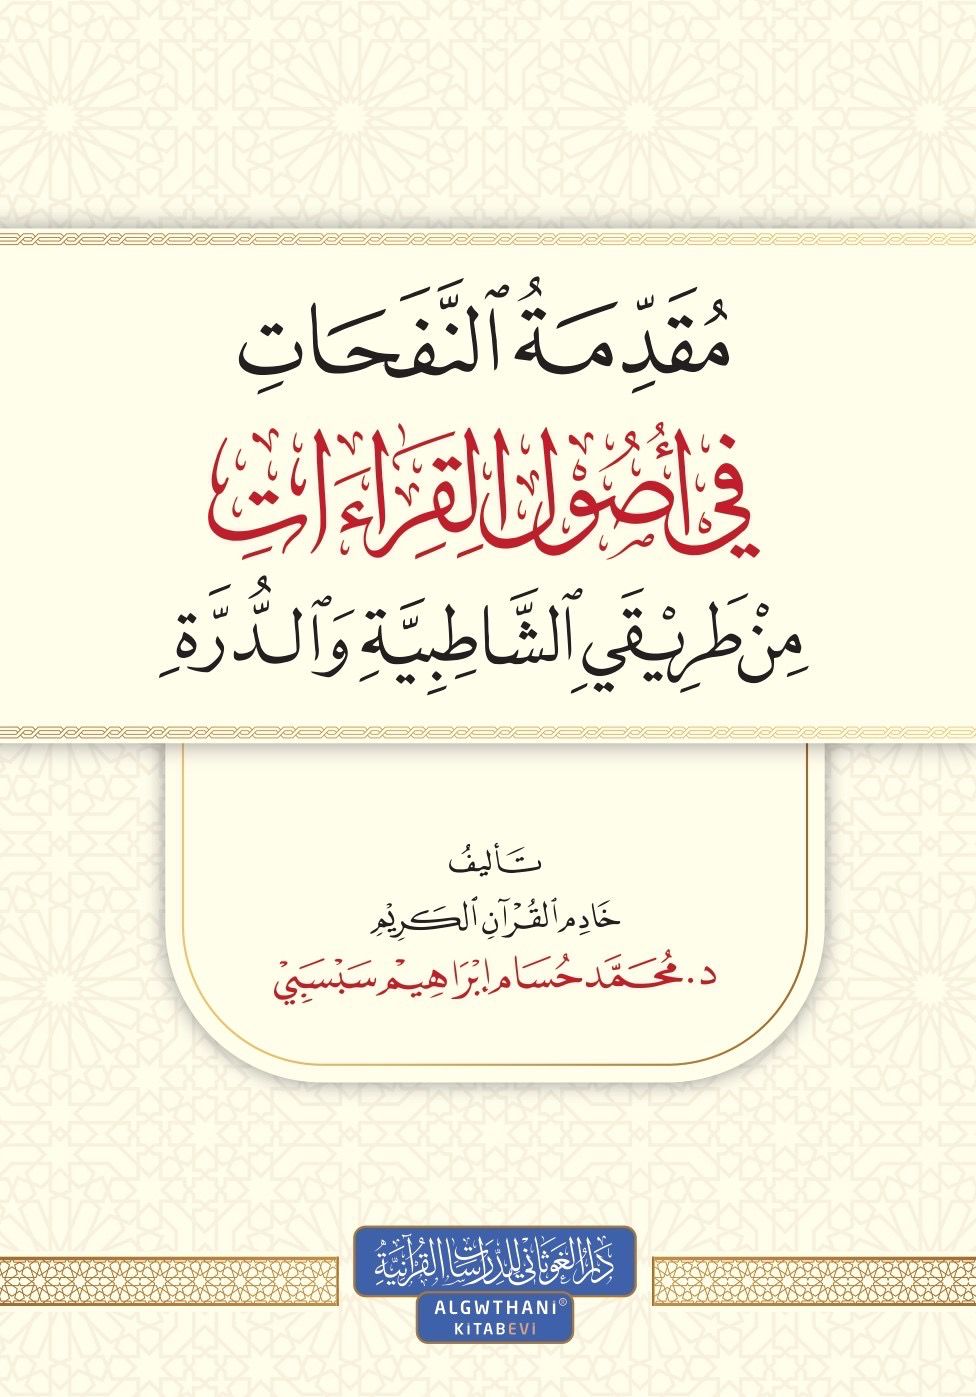 مُقَدِّمَةُ ٱلنَّفَحَاتِ
فِي أُصُوْلِ القِرَاءَاتِ
مِنْ طَرِيْقَيِ ٱلشَّاطِبِيَّةِ وَٱلدُّرَّةِ
تَأليفُ
خَادِمِ ٱلقُرْآنِ ٱلكَرِيْمِ
د. مُحَمَّد حُسَام إِبْرَاهِيْم سَبْسَبِيْ
دَارُ الغَوثَانِي لِلدِّرَاسَاتِ القُرْآنِيَّةِ
ALGWTHANi®
KiTABEVi